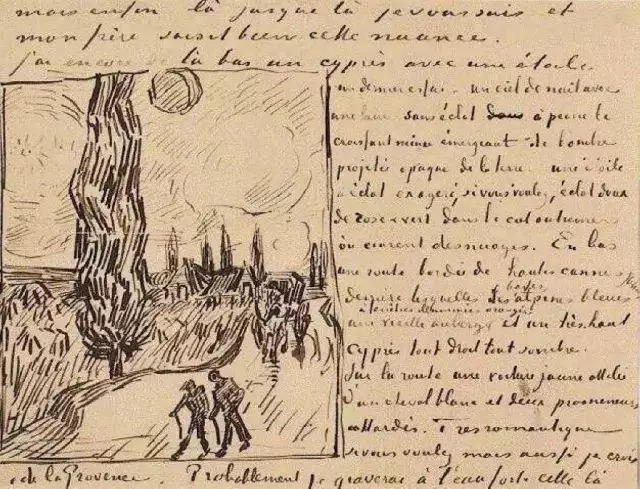 mais enfin là jusque là je vous suis et
mon frère saisit bien cette nuance.
J'ai encore de là bas un cyprès avec une étoile
un dernier essai - un ciel de nuit avec
une lune sans éclat dans à peine le
croissant mince émergeant de l'ombre
projetée opaque de la terre - une étoile
à éclat exageré, si vous voulez, éclat doux
de rose & vert dans le ciel outremer
où courent des nuages. En bas
une route bordée de hautes cannes
derrière lesquelles les basses alpines bleues
à fenêtres illuminées orangée
une vieille auberge et un très haut
cyprès tout droit tout sombre.
Sur la route une voiture jaune attelée
d'un cheval blanc et deux promeneurs
attardés. Très romantique
si vous voulez mais aussi je crois
de la Provence. Probablement je graverai à l'eau forte celle là